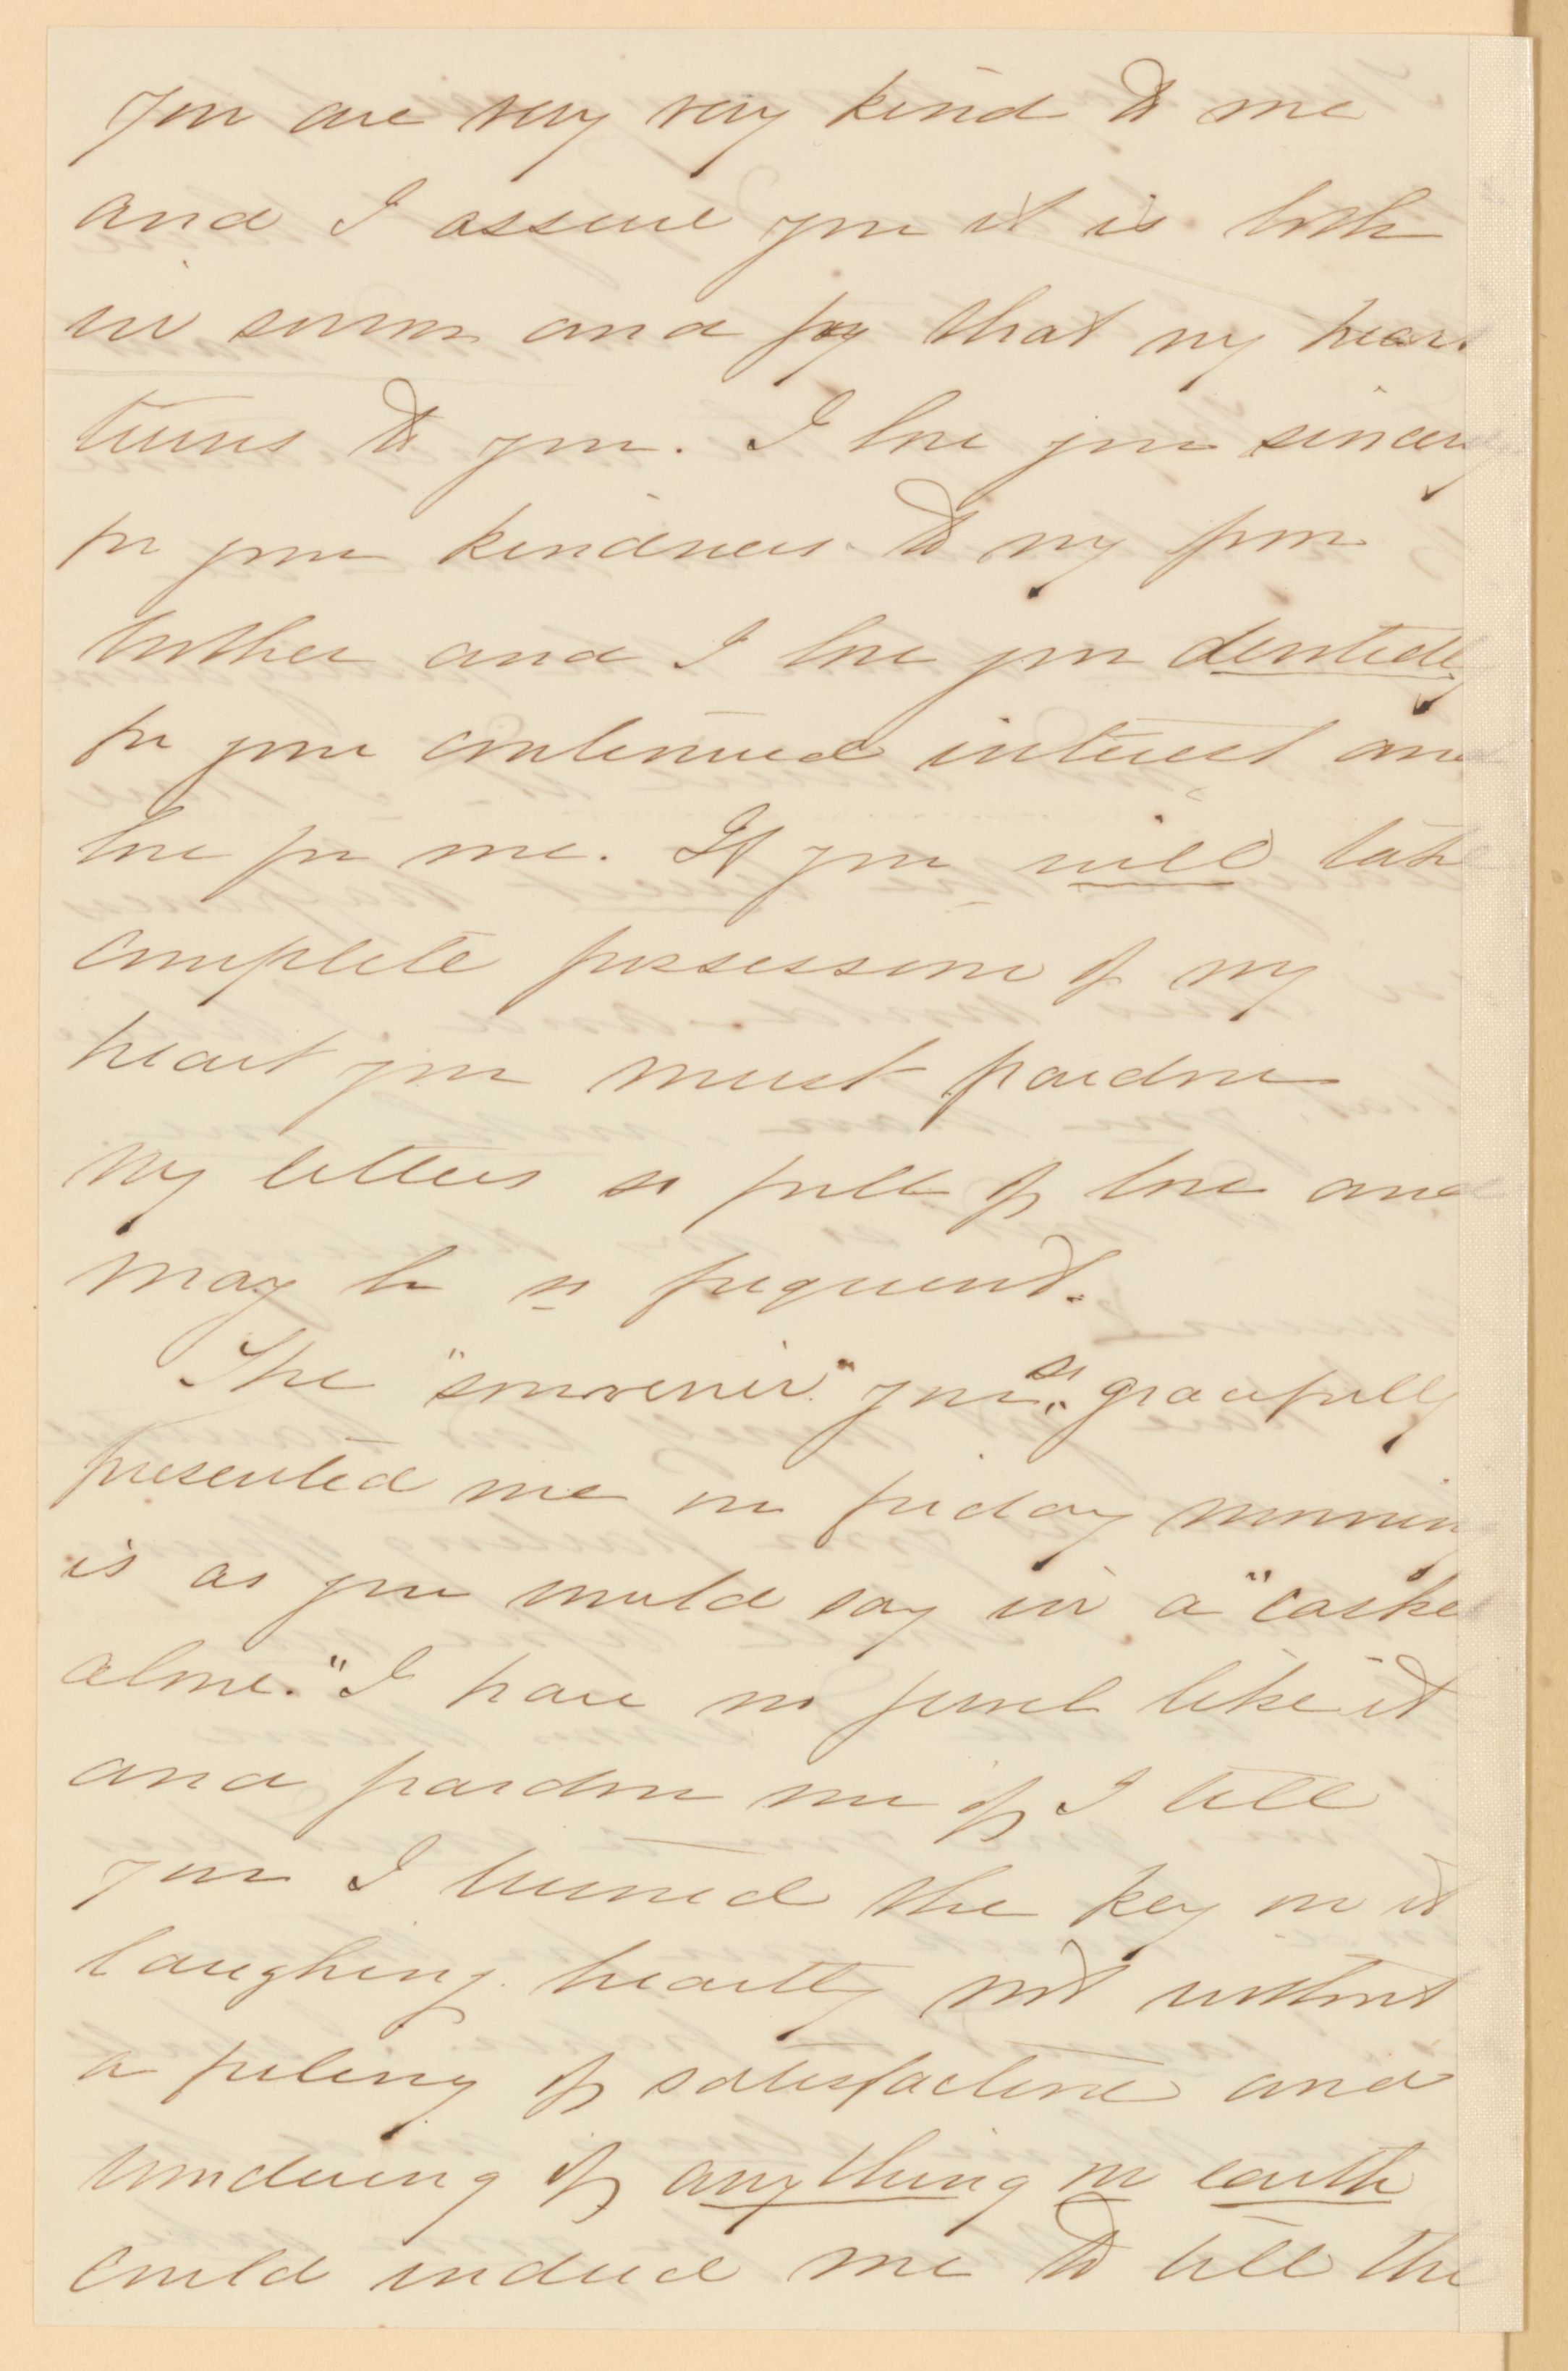 You are very very kind to me
and I assure you it is both
in sorrow and joy that my heart
turns to you. I love you sincerely
for your kindness to my poor
brother and I love you
for your continued interest and
love for me. If you will take
complete possession of my
heart you must pardon
my letters so full of love and
may be so frequent.
The "souvenir" you so gracefully
presented me on friday morning
is as you would say in a "casket
alone." I have no jewel like it
and pardon me if I tell
you I turned the key on it
laughing heartily not without
a feeling of satisfaction and
wondering if anything on earth
could induce me to tell the